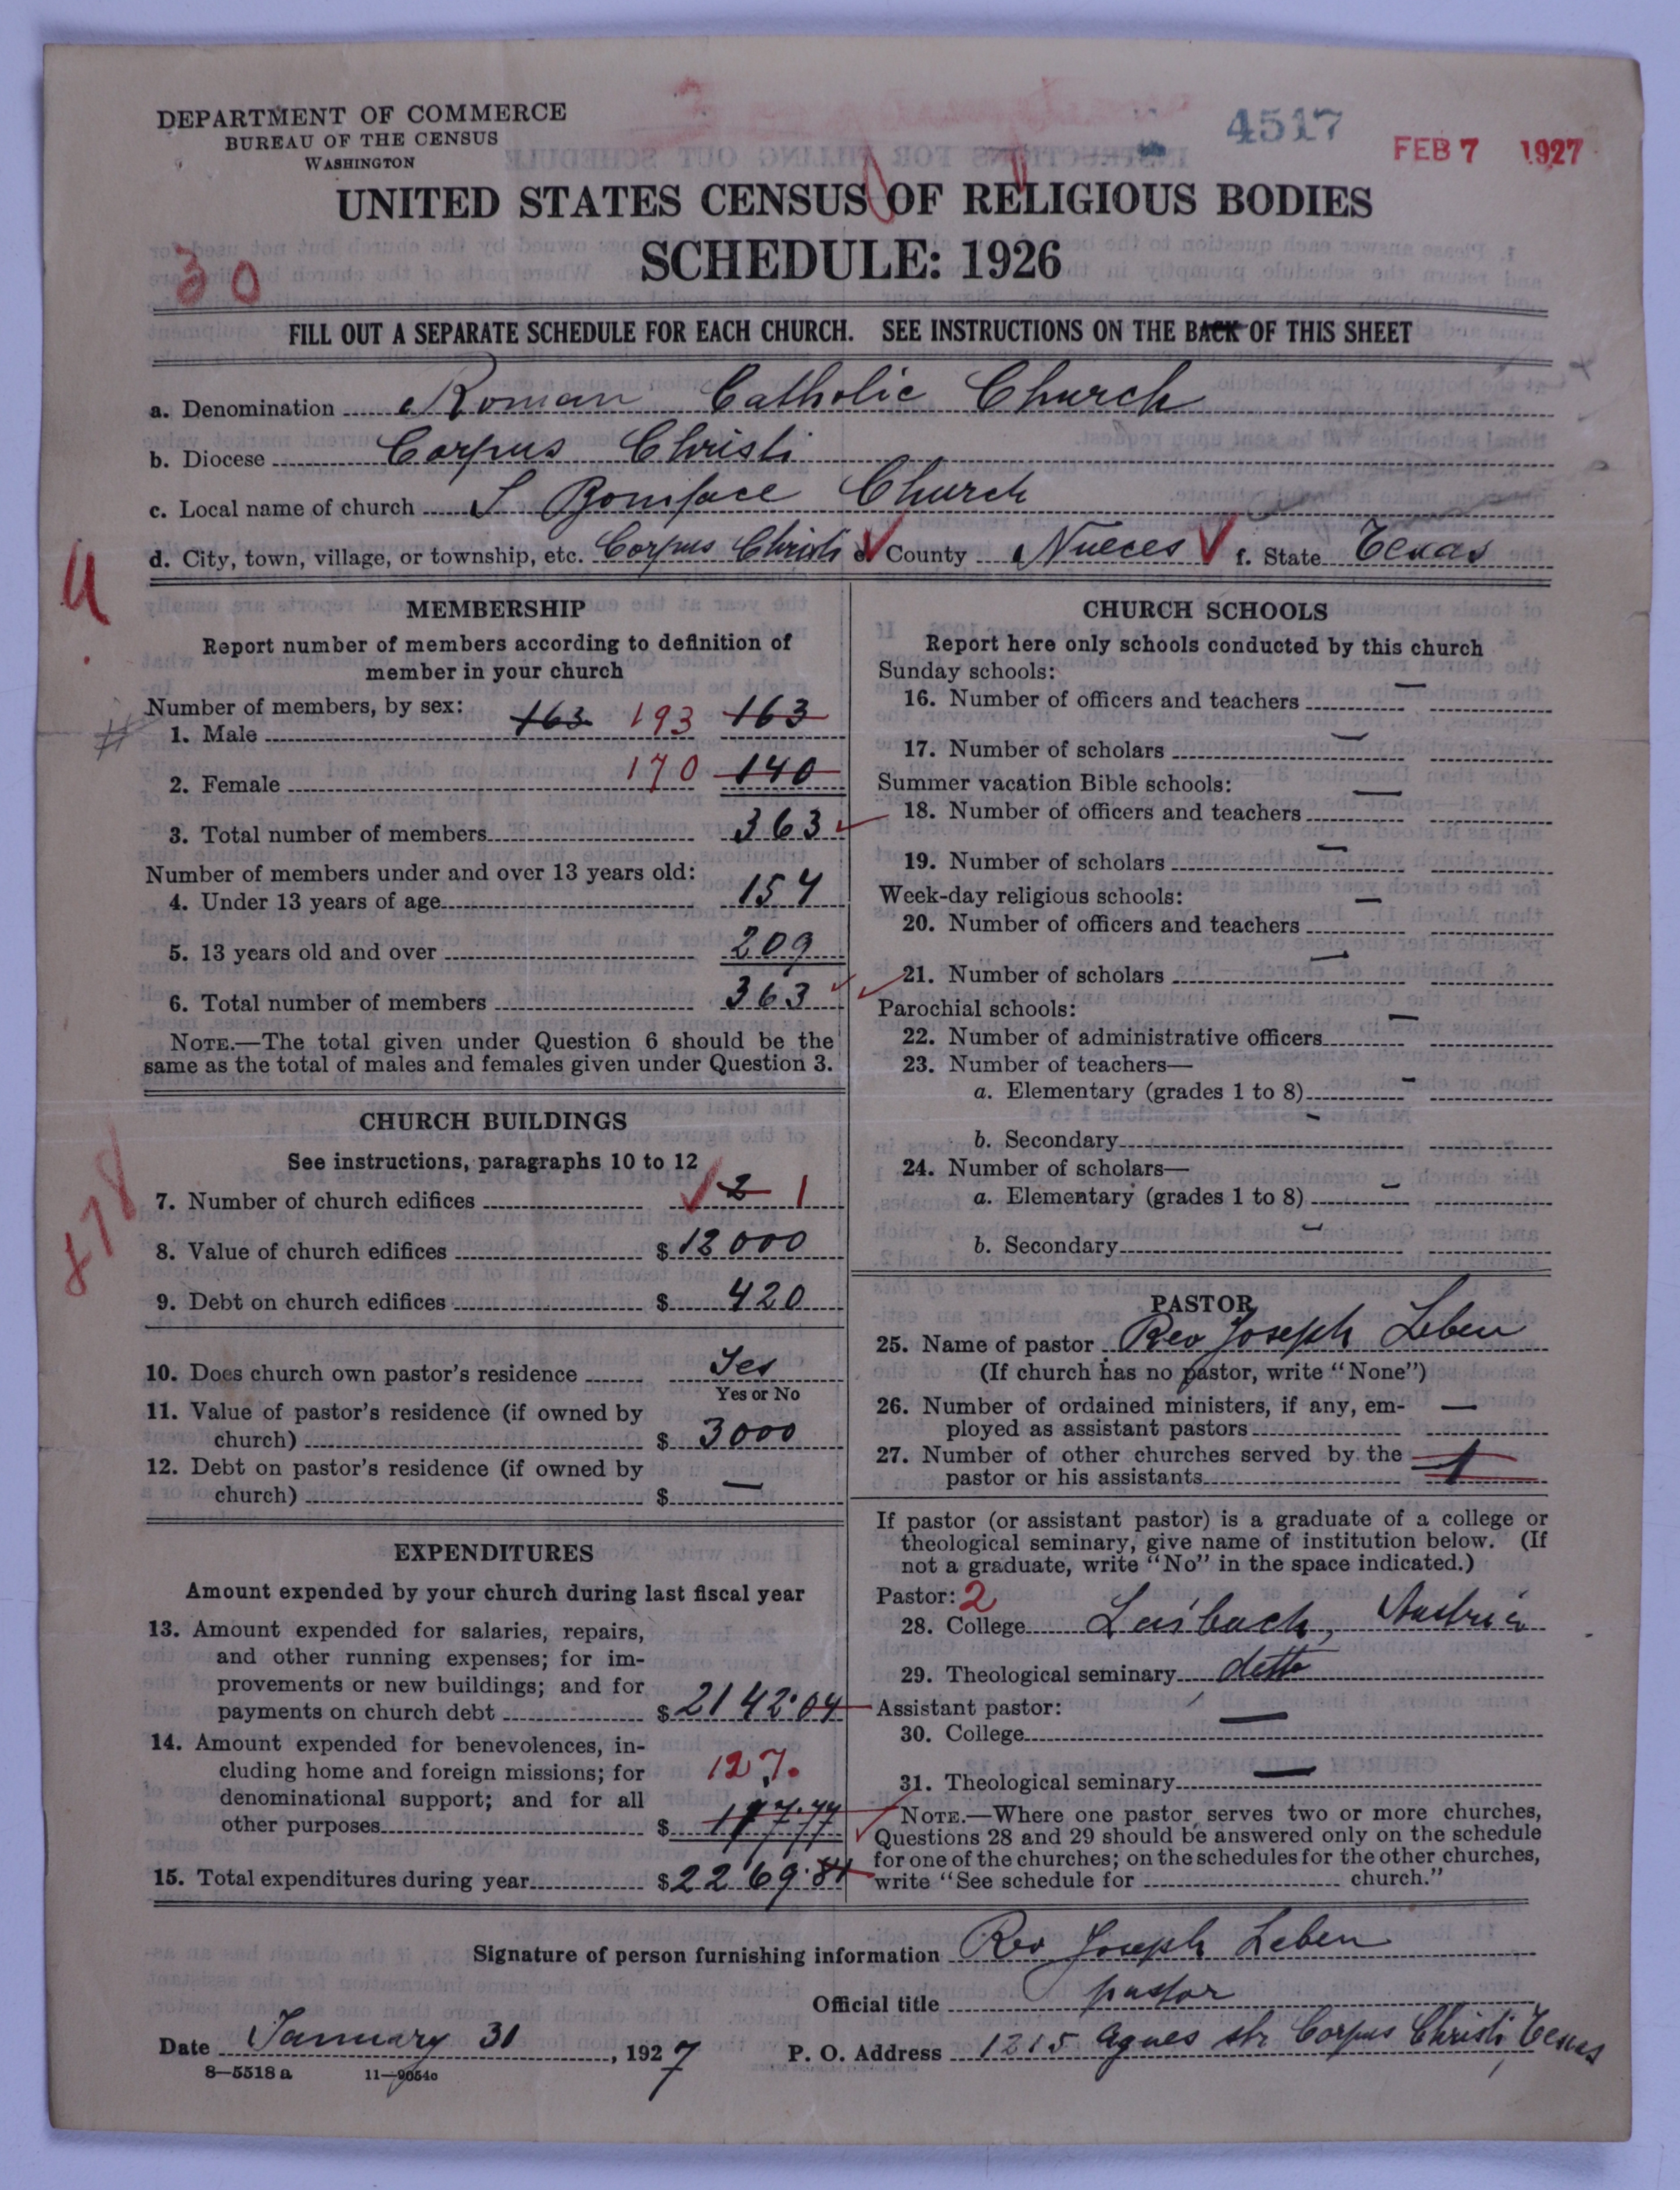 DEPARTMENT OF COMMERCE
BUREAU OF THE CENSUS
WASHINGTON
4517
FEB 7 1927
UNITED STATES CENSUS OF RELIGIOUS BODIES
SCHEDULE: 1926
30
FILL OUT A SEPARATE SCHEDULE FOR EACH CHURCH. SEE INSTRUCTIONS ON THE BACK OF THIS SHEET
a. Denomination Roman Catholic Church
b. Diocese Corpus Christi
c. Local name of church S Boniface Church
d. City, town, village, or township, etc. Corpus Christi e. County Nueces f. State Texas
MEMBERSHIP
Report number of members according to definition of
member in your church
Number of members, by sex:
1. Male 163 193 163
2. Female 170 140
3. Total number of members 363
Number of members under and over 13 years old:
4. Under 13 years of age 154
5. 13 years old and over 209
6. Total number of members 363
NOTE.—The total given under Question 6 should be the
same as the total of males and females given under Question 3.
CHURCH BUILDINGS
See instructions, paragraphs 10 to 12
7. Number of church edifices 2 1
8. Value of church edifices $ 12000
9. Debt on church edifices $ 420
10. Does church own pastor's residence Yes
Yes or No
11. Value of pastor's residence (if owned by
church) $ 3000
12. Debt on pastor's residence (if owned by
church) $ —
EXPENDITURES
Amount expended by your church during last fiscal year
13. Amount expended for salaries, repairs,
and other running expenses; for im-
provements or new buildings; and for
payments on church debt $ 2142.04
14. Amount expended for benevolences, in-
cluding home and foreign missions; for
denominational support; and for all
127.
other purposes $
15. Total expenditures during year $ 2269.84
CHURCH SCHOOLS
Report here only schools conducted by this church
Sunday schools:
16. Number of officers and teachers —
17. Number of scholars —
Summer vacation Bible schools:
18. Number of officers and teachers —
19. Number of scholars —
Week-day religious schools:
20. Number of officers and teachers —
21. Number of scholars —
Parochial schools:
22. Number of administrative officers —
23. Number of teachers—
a. Elementary (grades 1 to 8) -
b. Secondary -
24. Number of scholars—
a. Elementary (grades 1 to 8) -
b. Secondary -
PASTOR
25. Name of pastor Rev Joseph Leben
(If church has no pastor, write "None")
26. Number of ordained ministers, if any, em-
ployed as assistant pastors —
27. Number of other churches served by the
pastor or his assistants 1
If pastor (or assistant pastor) is a graduate of a college or
theological seminary, give name of institution below. (If
not a graduate, write "No" in the space indicated.)
Pastor: 2
28. College Laibach, Austria
29. Theological seminary detto
Assistant pastor:
30. College —
31. Theological seminary —
NOTE.—Where one pastor serves two or more churches,
Questions 28 and 29 should be answered only on the schedule
for one of the churches; on the schedules for the other churches,
write "See schedule for church."
Signature of person furnishing information Rev Joseph Leben
Official title pastor
Date January 31, 1927 P. O. Address 1215 Agnes str Corpus Christi, Texas
8—5518 a 11—9054c